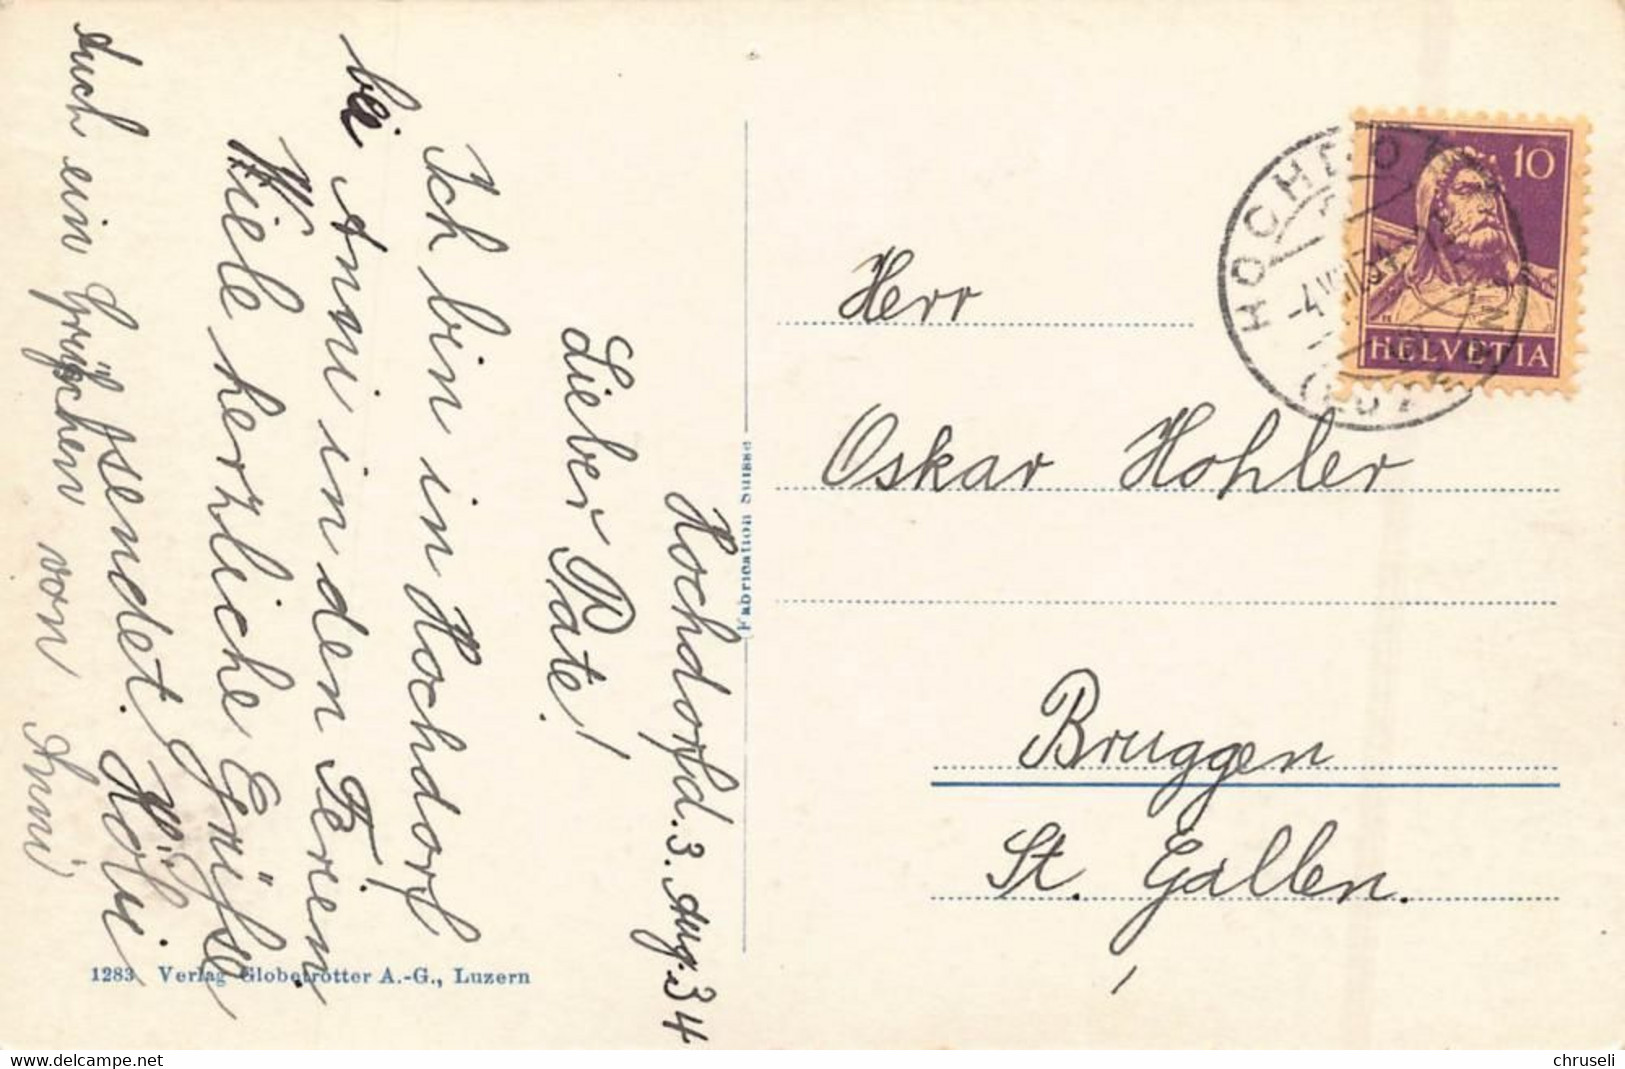 Hochdorf d. 3. Aug. 34
Lieber Pate!
Ich bin in Hochdorf
bei Anni in den Ferien
Viele herzliche Grüsse
sendet
Auch ein Grüsschen von Anni
Herr
Oskar Hohler
Bruggen
St. Gallen.
HELVETIA
10
HOCHDO
-4.VIII.34
(Fabrication Suisse
1283 Verlag Globetrotter A.-G., Luzern
https://www.delcampe.net
chruseli